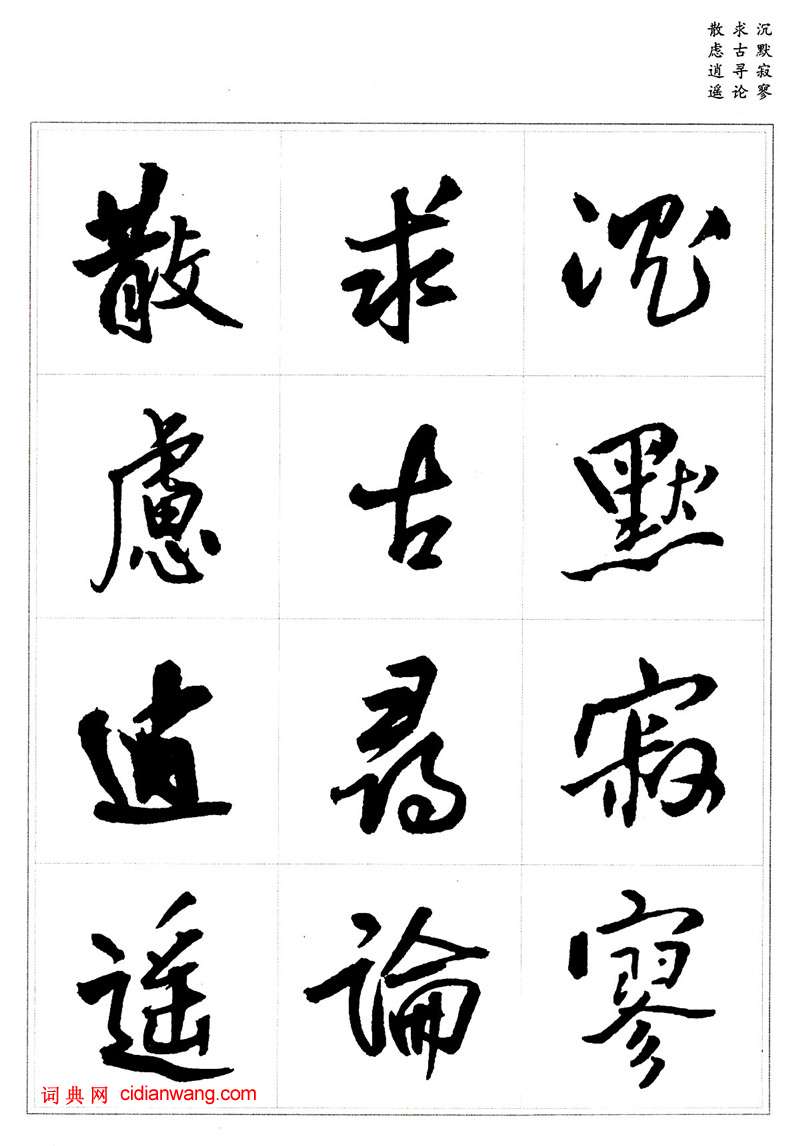 沉默寂寥
求古寻论
散虑逍遥
沉默寂寥
求古尋論
散慮逍遥
词典网 cidianwang.com